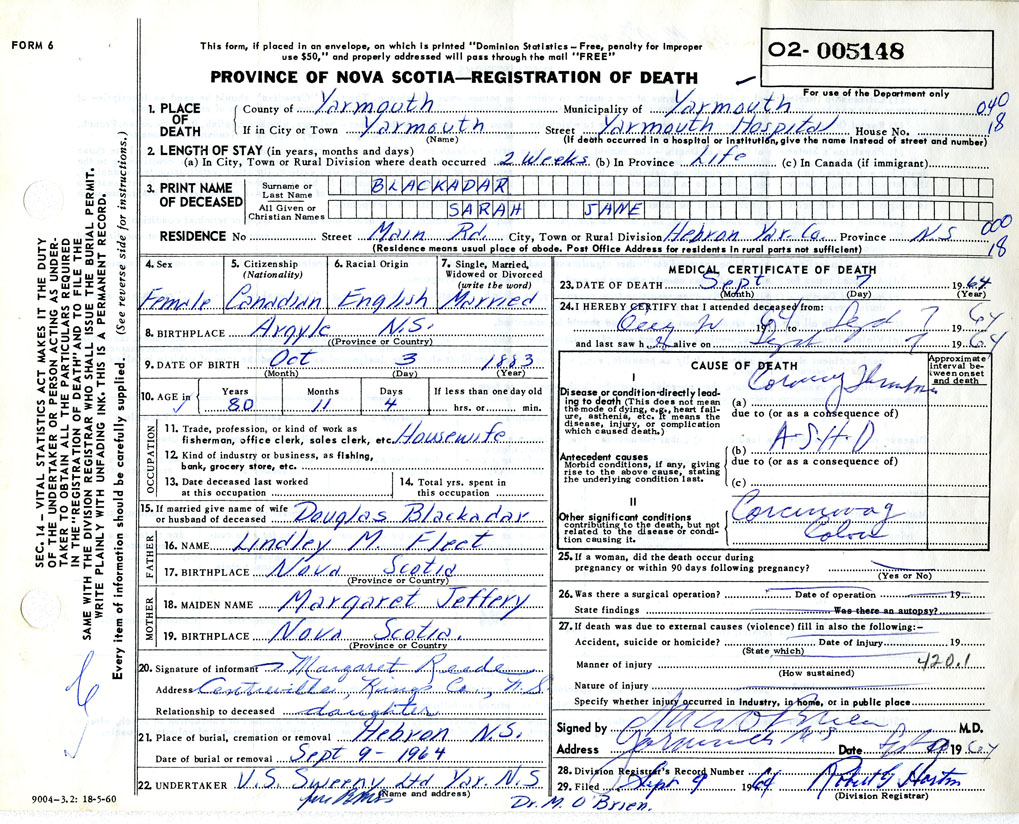 FORM 6
This form, if placed in an envelope, on which is printed "Dominion Statistics – Free, penalty for improper
use $50," and properly addressed will pass through the mail "FREE"
02- 005148
For use of the Department only
PROVINCE OF NOVA SCOTIA—REGISTRATION OF DEATH
1. PLACE OF DEATH
County of Yarmouth Municipality of Yarmouth 040
If in City or Town Yarmouth Street Yarmouth Hospital House No. 18
(Name) (If death occurred in a hospital or institution, give the name instead of street and number)
2. LENGTH OF STAY (in years, months and days)
(a) In City, Town or Rural Division where death occurred 2 Weeks (b) In Province Life (c) In Canada (if immigrant)
3. PRINT NAME OF DECEASED
Surname or Last Name BLACKADAR
All Given or Christian Names SARAH JANE
000
RESIDENCE No Street Main Rd. City, Town or Rural Division Hebron Yar. Co. Province N.S 18
(Residence means usual place of abode. Post Office Address for residents in rural parts not sufficient)
4. Sex Female
5. Citizenship (Nationality) Canadian
6. Racial Origin English
7. Single, Married, Widowed or Divorced (write the word) Married
8. BIRTHPLACE Argyle N.S.
(Province or Country)
9. DATE OF BIRTH Oct 3 1883
(Month) (Day) (Year)
10. AGE in Years 80 Months 11 Days 4 If less than one day old hrs. or min.
OCCUPATION
11. Trade, profession, or kind of work as
fisherman, office clerk, sales clerk, etc. Housewife
12. Kind of industry or business, as fishing,
bank, grocery store, etc.
13. Date deceased last worked at this occupation
14. Total yrs. spent in this occupation
15. If married give name of wife
or husband of deceased Douglas Blackadar
FATHER
16. NAME Lindley M. Fleet
17. BIRTHPLACE Nova Scotia
(Province or Country)
MOTHER
18. MAIDEN NAME Margaret Jeffery
19. BIRTHPLACE Nova Scotia.
(Province or Country
20. Signature of informant Margaret Reede
Address Centreville, Kings Co., N.S
Relationship to deceased daughter
21. Place of burial, cremation or removal Hebron N.S.
Date of burial or removal Sept 9 - 1964
22. UNDERTAKER V.S. Sweeny Ltd Yar. N.S
(Name and address)
MEDICAL CERTIFICATE OF DEATH
23. DATE OF DEATH Sept 7 1964
(Month) (Day) (Year)
24. I HEREBY CERTIFY that I attended deceased from:
19 64 to Sept 7 19 64
and last saw h alive on Sept 7 19 64
CAUSE OF DEATH
Approximate interval between onset and death
I
Disease or condition directly leading to death (This does not mean the mode of dying, e.g., heart failure, asthenia, etc. It means the disease, injury, or complication which caused death.)
(a) Coronary Thrombosis
due to (or as a consequence of)
Antecedent causes
Morbid conditions, if any, giving rise to the above cause, stating the underlying condition last.
(b) A-S-H-D
due to (or as a consequence of)
(c)
II
Other significant conditions
contributing to the death, but not related to the disease or condition causing it.
Colon
25. If a woman, did the death occur during
pregnancy or within 90 days following pregnancy?
(Yes or No)
26. Was there a surgical operation? Date of operation 19
State findings Was there an autopsy?
27. If death was due to external causes (violence) fill in also the following:-
Accident, suicide or homicide? Date of injury 19
(State which)
Manner of injury 420.1
(How sustained)
Nature of injury
Specify whether injury occurred in Industry, in home, or in public place
Signed by O'Brien M.D.
Address Yarmouth N S Date Sept 9 19 64
28. Division Registrar's Record Number
29. Filed Sept 9 1964
(Division Registrar)
Dr. M. O'Brien.
9004-3.2: 18-5-60
SEC. 14 – VITAL STATISTICS ACT MAKES IT THE DUTY
OF THE UNDERTAKER OR PERSON ACTING AS UNDER-
TAKER TO OBTAIN ALL THE PARTICULARS REQUIRED
IN THE "REGISTRATION OF DEATH" AND TO FILE THE
SAME WITH THE DIVISION REGISTRAR WHO SHALL ISSUE THE BURIAL PERMIT.
WRITE PLAINLY WITH UNFADING INK. THIS IS A PERMANENT RECORD.
Every item of information should be carefully supplied. (See reverse side for instructions.)